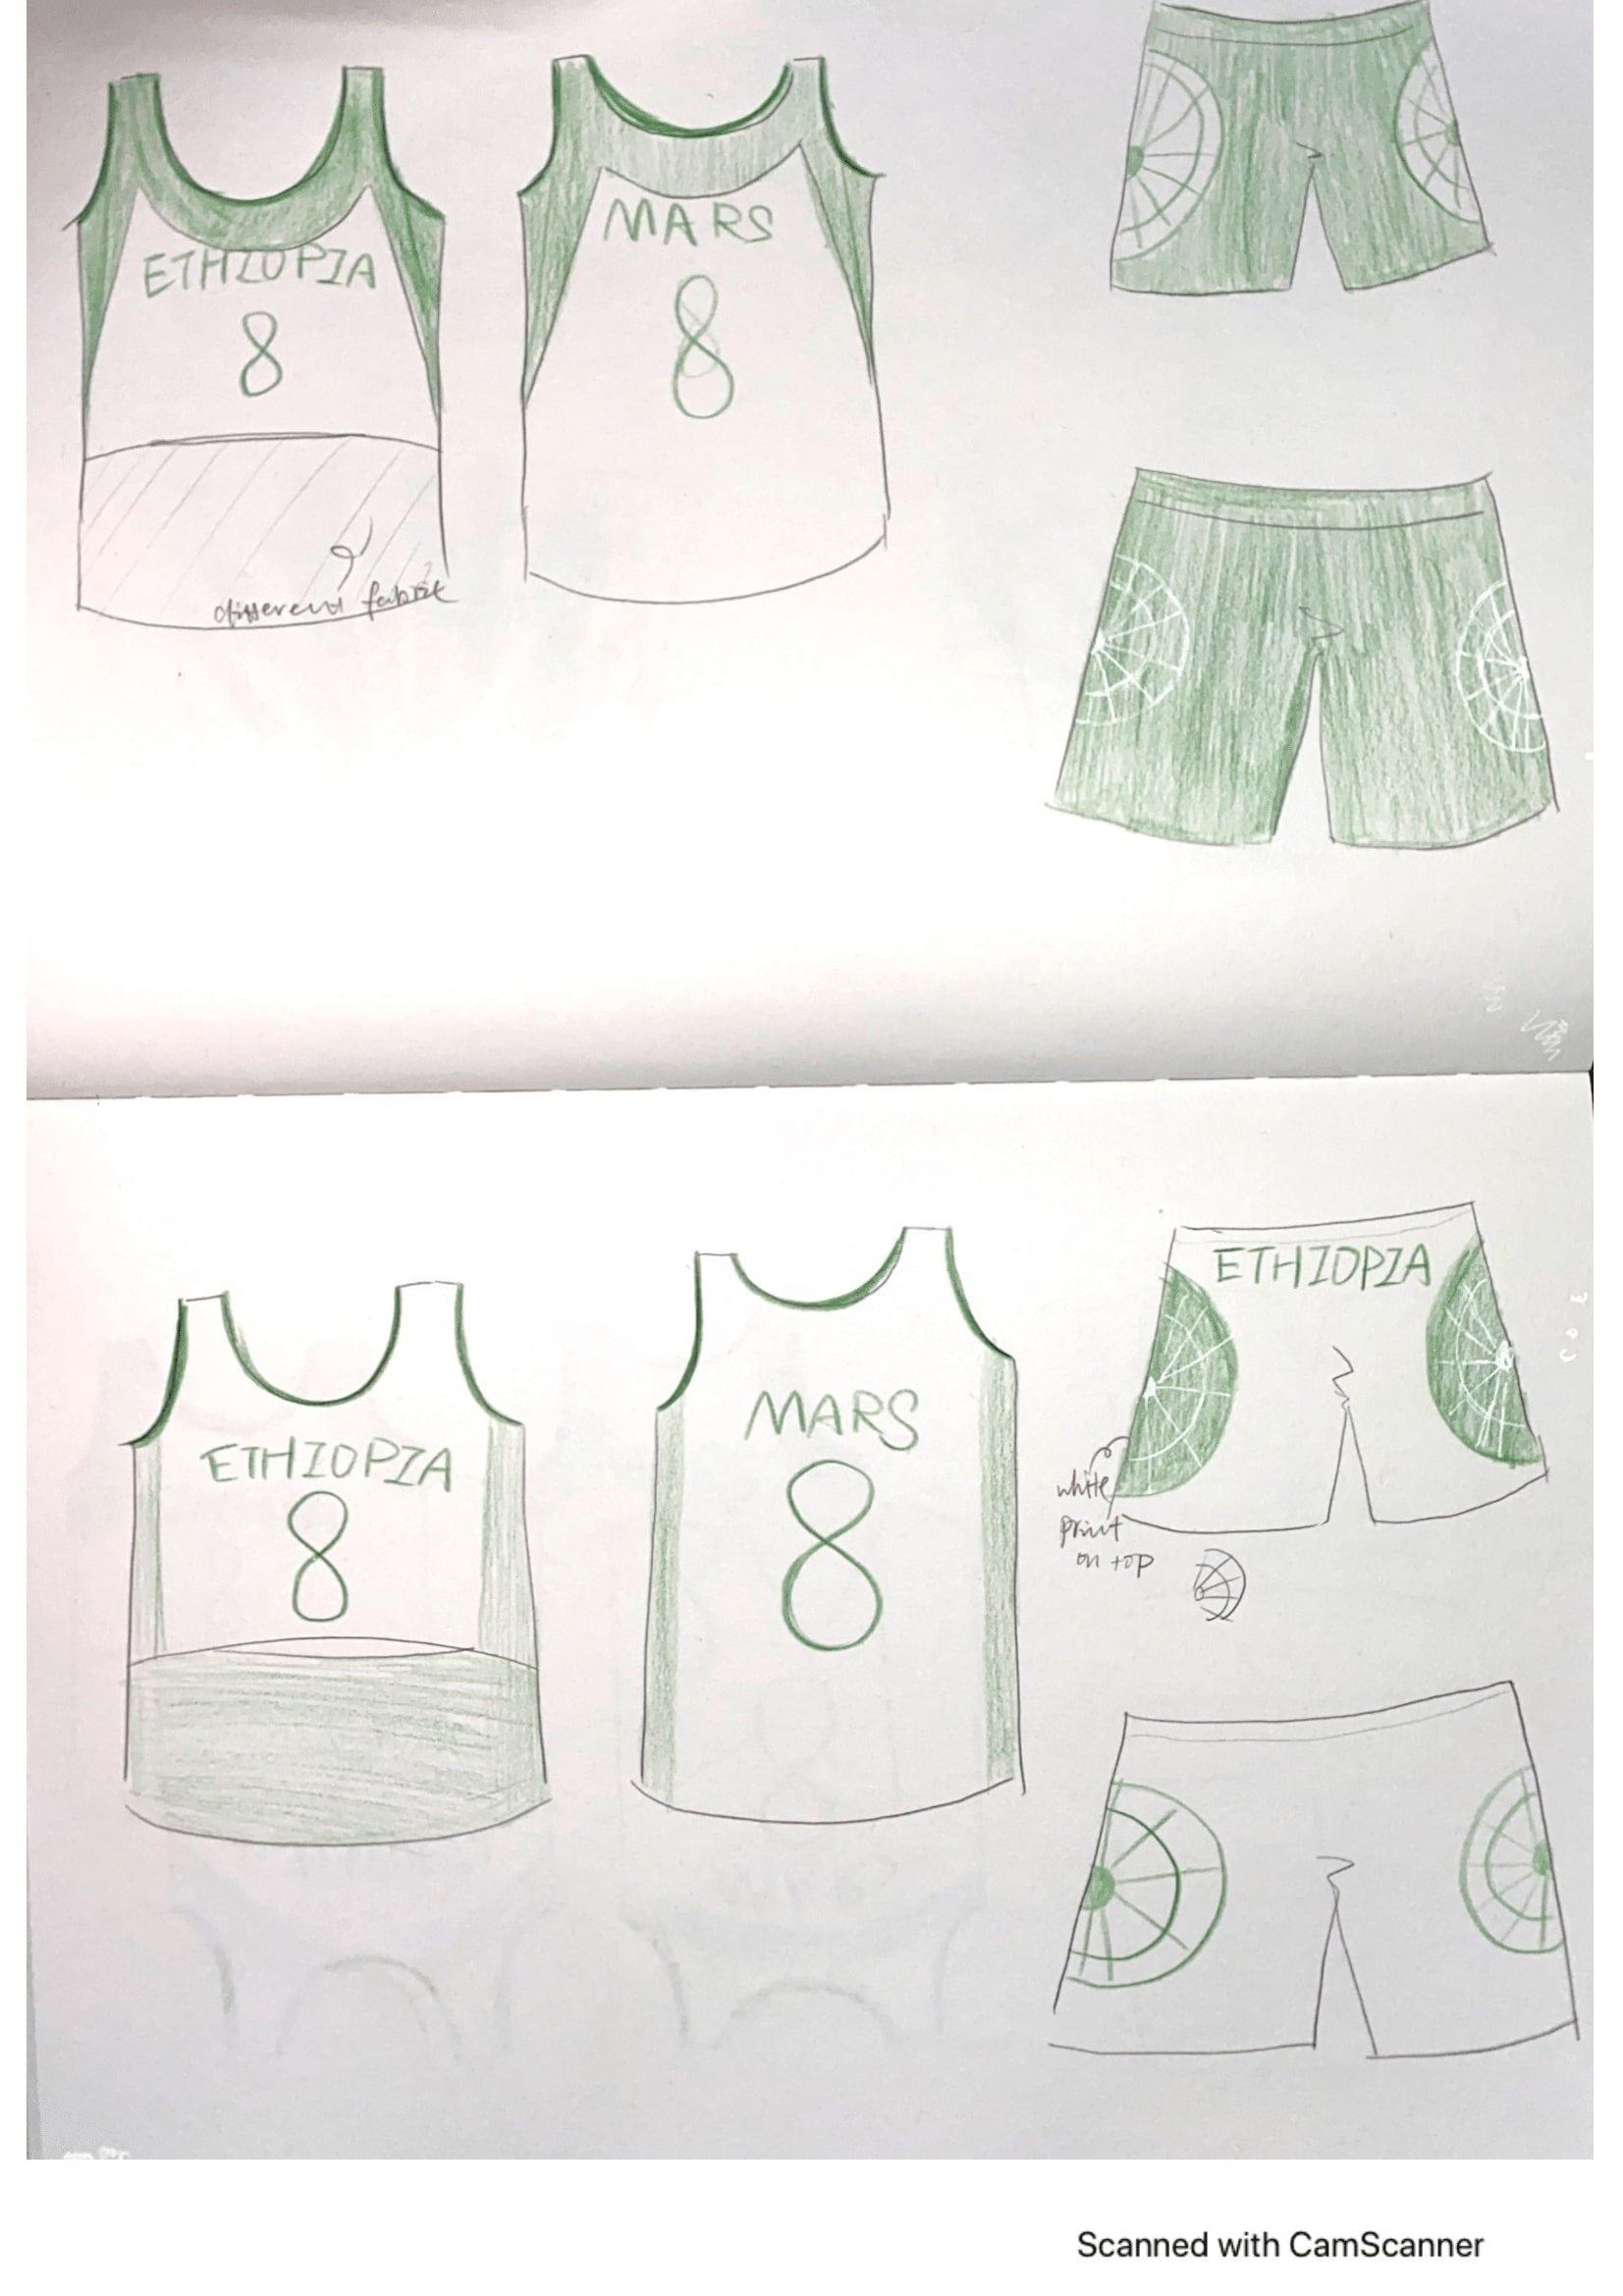 ETHIOPIA
8
different fabric
MARS
8
ETHIOPIA
8
MARS
8
ETHIOPIA
white
print
on top
Scanned with CamScanner